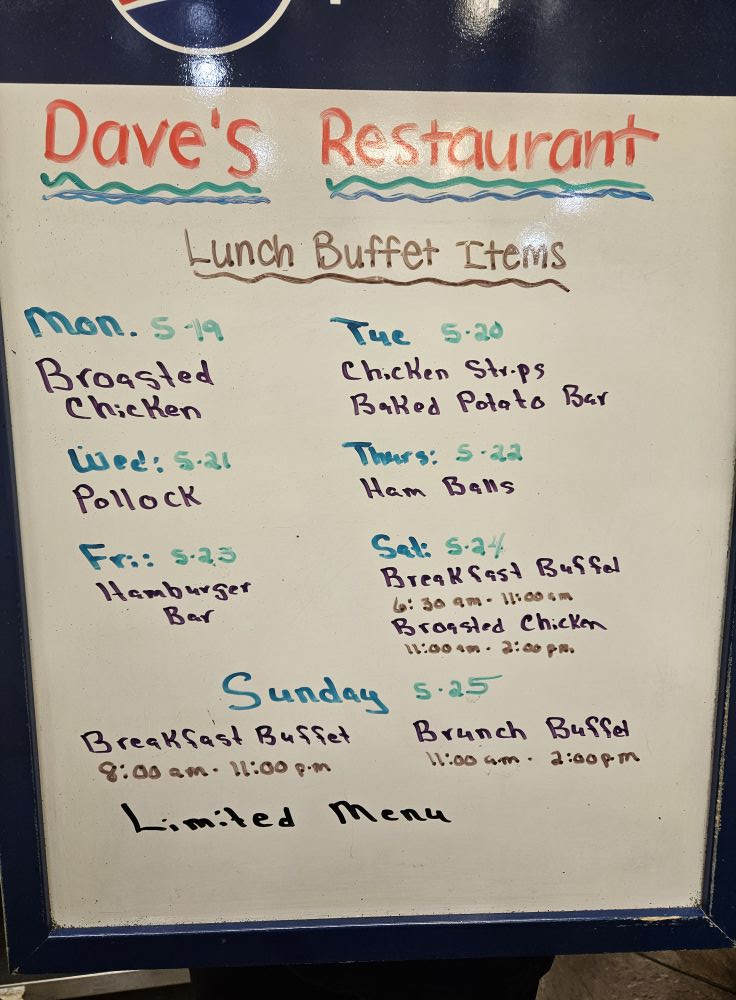 Dave's Restaurant
Lunch Buffet Items
Mon. 5-19
Broasted
Chicken
Tue 5-20
Chicken Strips
Baked Potato Bar
Wed: 5-21
Pollock
Thurs: 5-22
Ham Balls
Fri: 5-23
Hamburger
Bar
Sat: 5-24
Breakfast Buffet
6:30 am - 11:00 am
Broasted Chicken
11:00 am - 2:00 pm.
Sunday 5-25
Breakfast Buffet
8:00 am - 11:00 pm
Brunch Buffet
11:00 am - 2:00 pm
Limited Menu